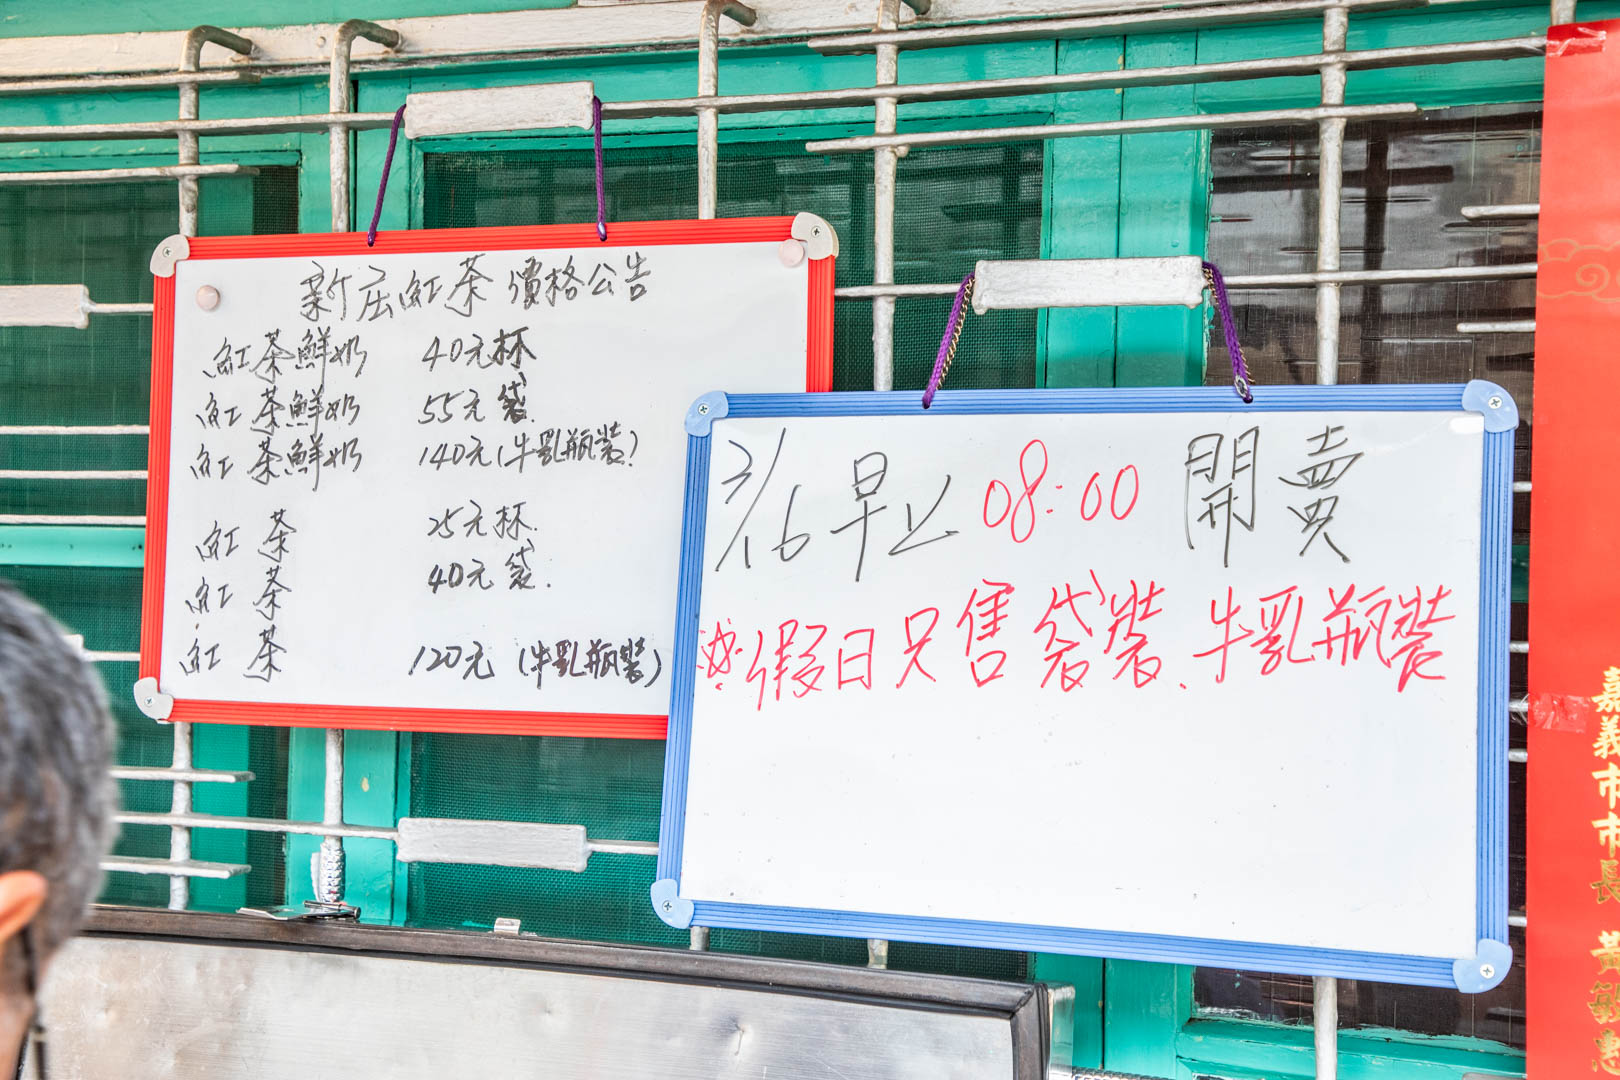 新庄紅茶價格公告
紅茶鮮奶 40元杯
紅茶鮮奶 55元袋.
紅茶鮮奶 140元(牛乳瓶裝)
紅茶 25元杯.
紅茶 40元袋.
紅茶 120元(牛乳瓶裝)
3/16早上08:00開賣
※假日只售袋裝、牛乳瓶裝
嘉義市市長 黃敏惠